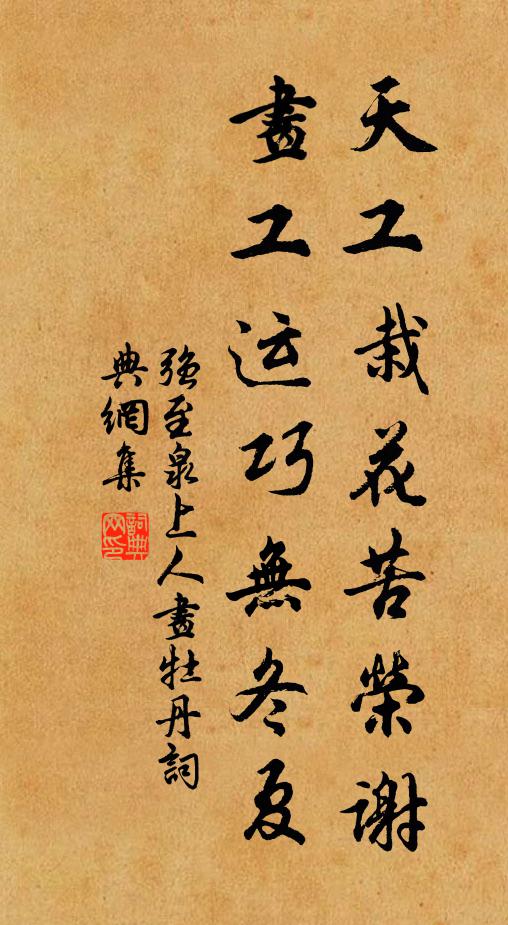 天工栽花苦榮谢
畫工运巧無冬夏
强至泉上人畫牡丹詞
典網集
詞典网印